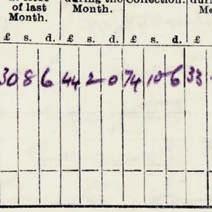 during the Collection. duri
of last Month. Me
Month.
£ s. d. £ s. d. £ s. d. £
30 8 6 44 2 0 74 10 6 33